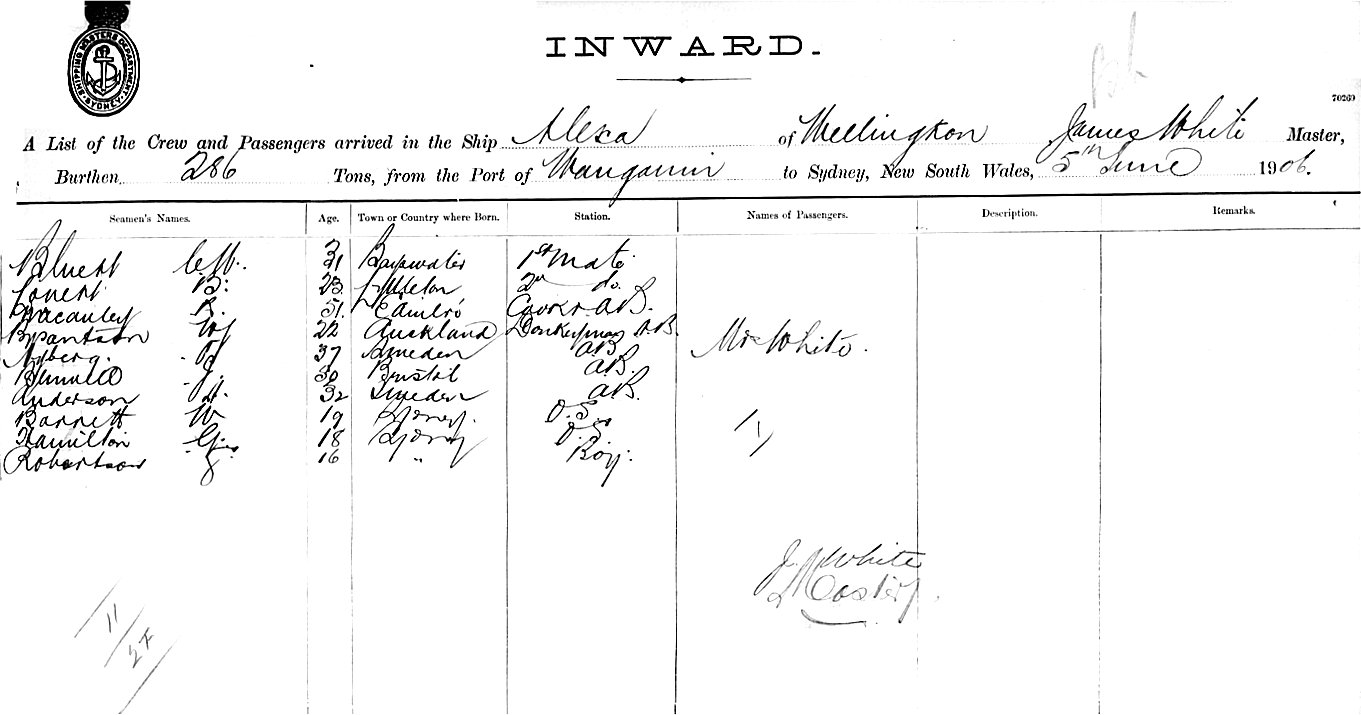 SHIPPING MASTERS DEPARTMENT
SYDNEY
INWARD.
70269
A List of the Crew and Passengers arrived in the Ship Alexa of Wellington James White Master,
Burthen 286 Tons, from the Port of to Sydney, New South Wales, 5th June 1906.
Seamen's Names. Age. Town or Country where Born. Station. Names of Passengers. Description. Remarks.
31 Bayswater 1st Mate
B. 23 Lyttleton 2nd do.
Macauley R. 51 Cook & A.B.
W 22 Auckland Donkeyman A.B.
Mrs White.
Nyberg 37 Sweden A.B.
J. 30 Bristol A.B.
Anderson A. 32 Sweden A.B.
Barrett W 19 Sydney. O.S.
Hamilton G. 18 Sydney O.S.
Robertson 16 " Boy.
J. White
Master
11/